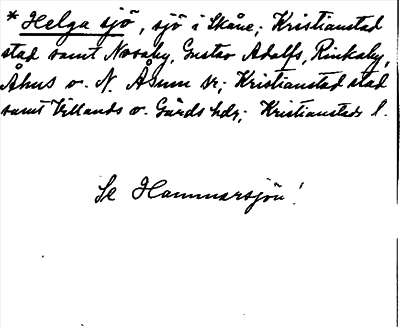 * Helga sjö, sjö i Skåne; Kristianstad
stad samt Nosaby, Gustav Adolfs, Rinkaby,
Åhus o. N. Åsum sr; Kristianstad stad
samt Villands o. Gärds hdr; Kristianstads l.
Se Hammarsjön!